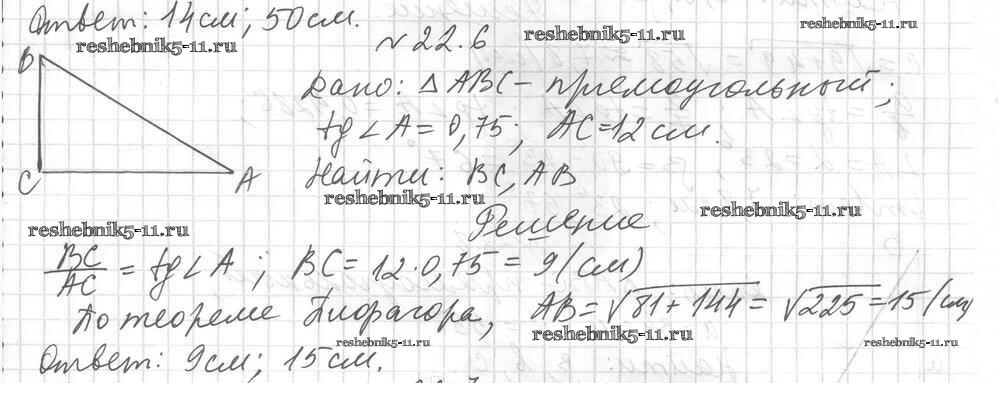 Ответ: 14 см; 50 см.
reshebnik5-11.ru reshebnik5-11.ru reshebnik5-11.ru
№ 22.6
B
Дано: △ ABC - прямоугольный;
tg∠A = 0,75; AC = 12 см.
C A
Найти: BC, AB
reshebnik5-11.ru reshebnik5-11.ru
Решение
reshebnik5-11.ru
BC/AC = tg∠A; BC = 12·0,75 = 9 (см)
По теореме Пифагора, AB = √81+144 = √225 = 15 (см)
reshebnik5-11.ru reshebnik5-11.ru reshebnik5-11.ru
Ответ: 9 см; 15 см.